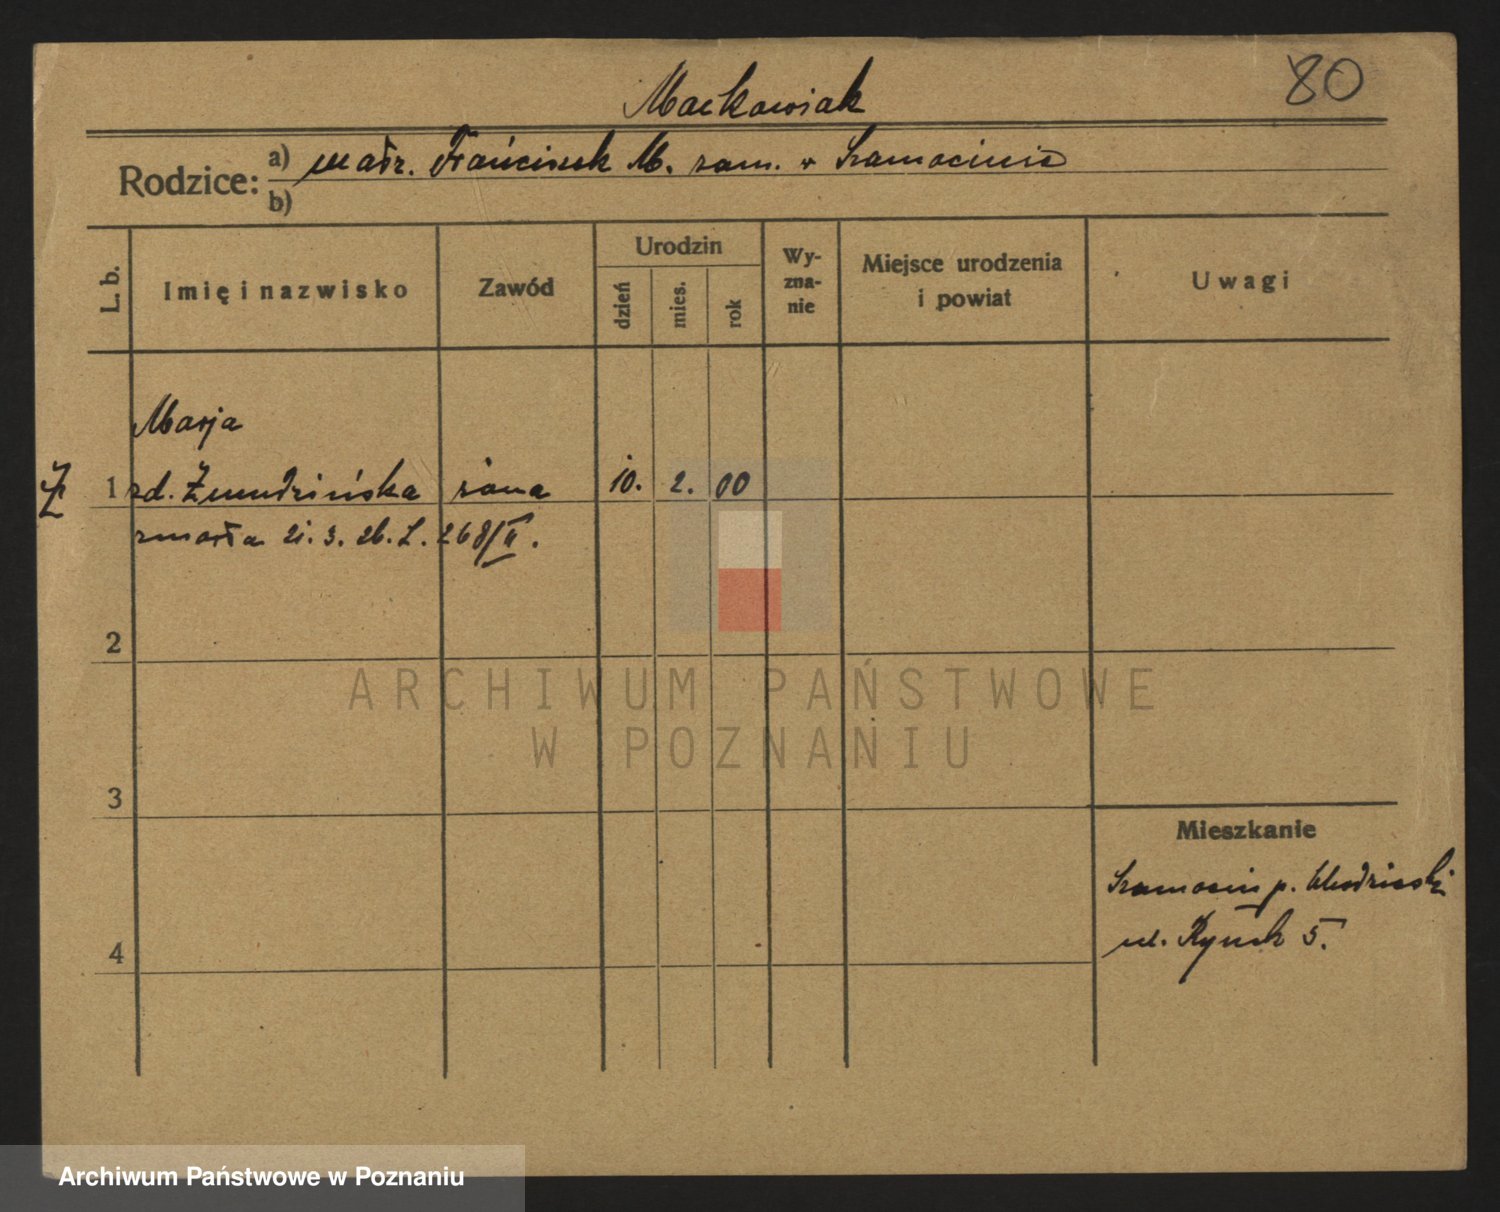 80
Maćkowiak
Rodzice: a) małż. Franciszek M. zam. w Szamocinie
b)
L. b. Imię i nazwisko Zawód Urodzin dzień mies. rok Wyznanie Miejsce urodzenia i powiat Uwagi
Marja
Ż 1 zd. Żmudzińska żona 10. 2. 00
zmarła 21. 3. 26. L. 268/II.
2
ARCHIWUM PAŃSTWOWE
W POZNANIU
3
Mieszkanie
Szamocin p.
4
ul. Rynek 5.
Archiwum Państwowe w Poznaniu